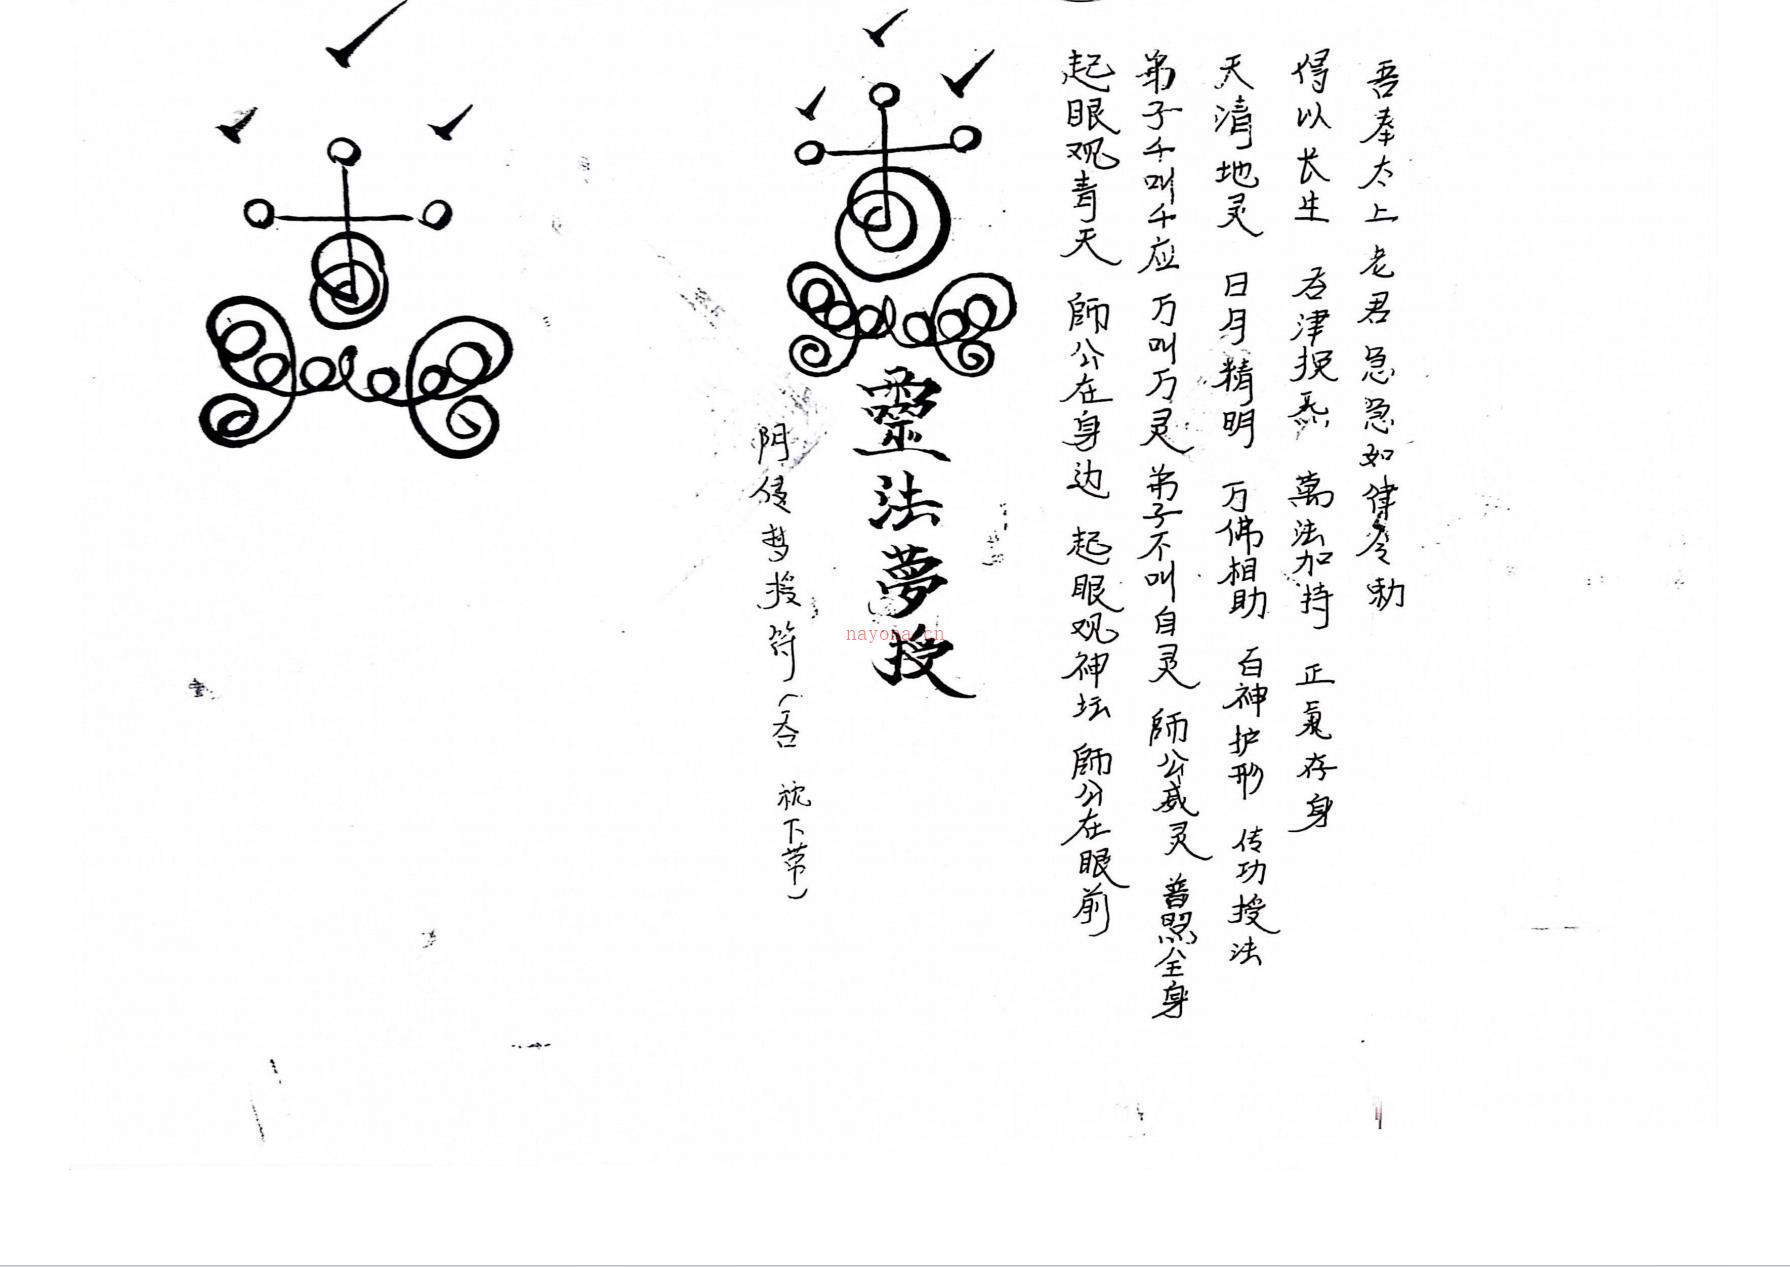 阴传梦授符（吞 枕下带）
靈法夢授
起眼观青天 師公在身边 起眼观神坛 師公在眼前
弟子千叫千应 万叫万灵 弟子不叫自灵 師公威灵 普照全身
天清地灵 日月精明 万佛相助 百神护形 传功授法
得以长生 吞津换炁 萬法加持 正氣存身
吾奉太上老君急急如律令勅
nayona.cn